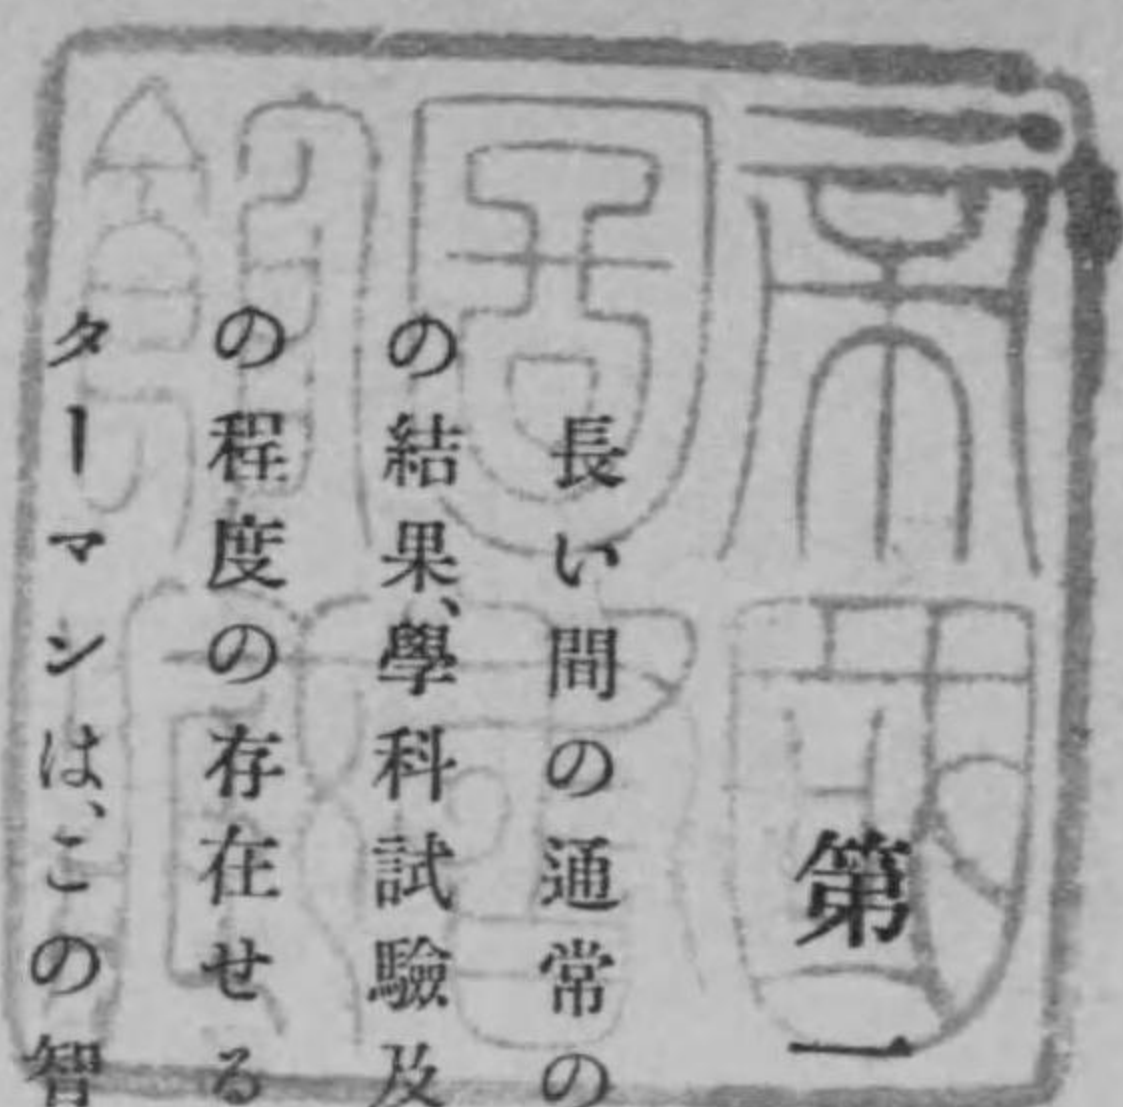 帝國
圖書
館藏
第一
長い間の通常の
の結果、學科試驗及
の程度の存在せる
ターマンは、この智